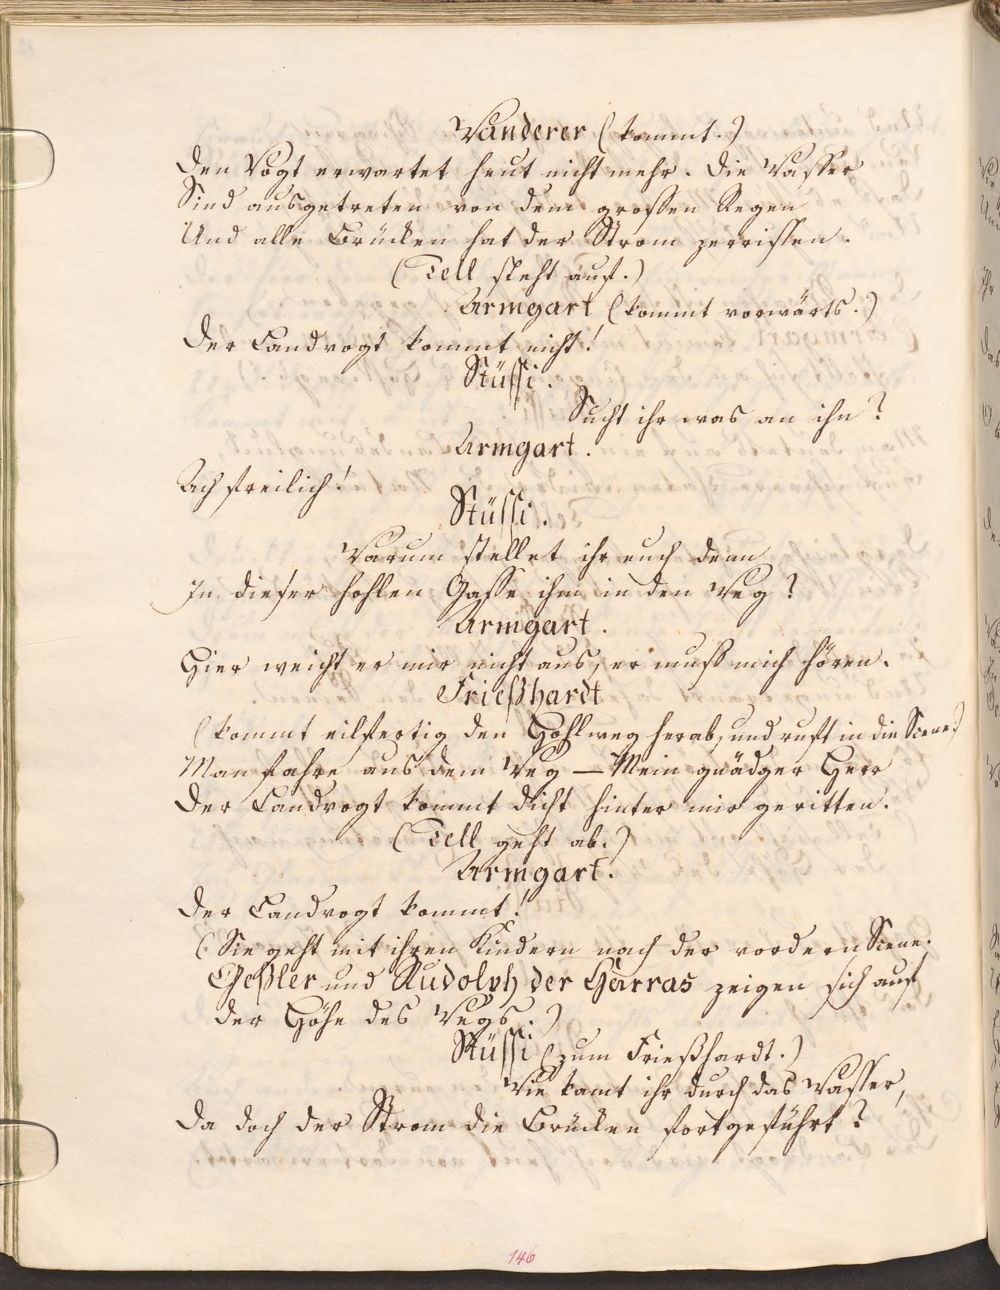 Wanderer (kommt.)
Den Vogt erwartet heut nicht mehr. Die Wasser
Sind ausgetreten von dem grossen Regen
Und alle Brücken hat der Strom zerrissen.
(Tell steht auf.)
Armgart (kommt vorwärts.)
Der Landvogt kommt nicht!
Stüssi.
Sucht ihr was an ihn?
Armgart.
Ach freilich!
Stüssi.
Warum stellet ihr euch denn
In dieser hohlen Gasse ihm in den Weg?
Armgart.
Hier weicht er mir nicht aus, er muß mich hören.
Frießhardt
(kommt eilfertig den Hohlweg herab, und ruft in die Scene.)
Man fahre aus dem Weg — Mein gnädger Herr
Der Landvogt kommt dicht hinter mir geritten.
(Tell geht ab.)
Armgart.
Der Landvogt kommt!
(Sie geht mit ihren Kindern nach der vordern Scene.
Geßler und Rudolph der Harras zeigen sich auf
der Höhe des Wegs.)
Stüssi (zum Frießhardt.)
Wie kamt ihr durch das Wasser,
Da doch der Strom die Brücken fortgeführt?
146